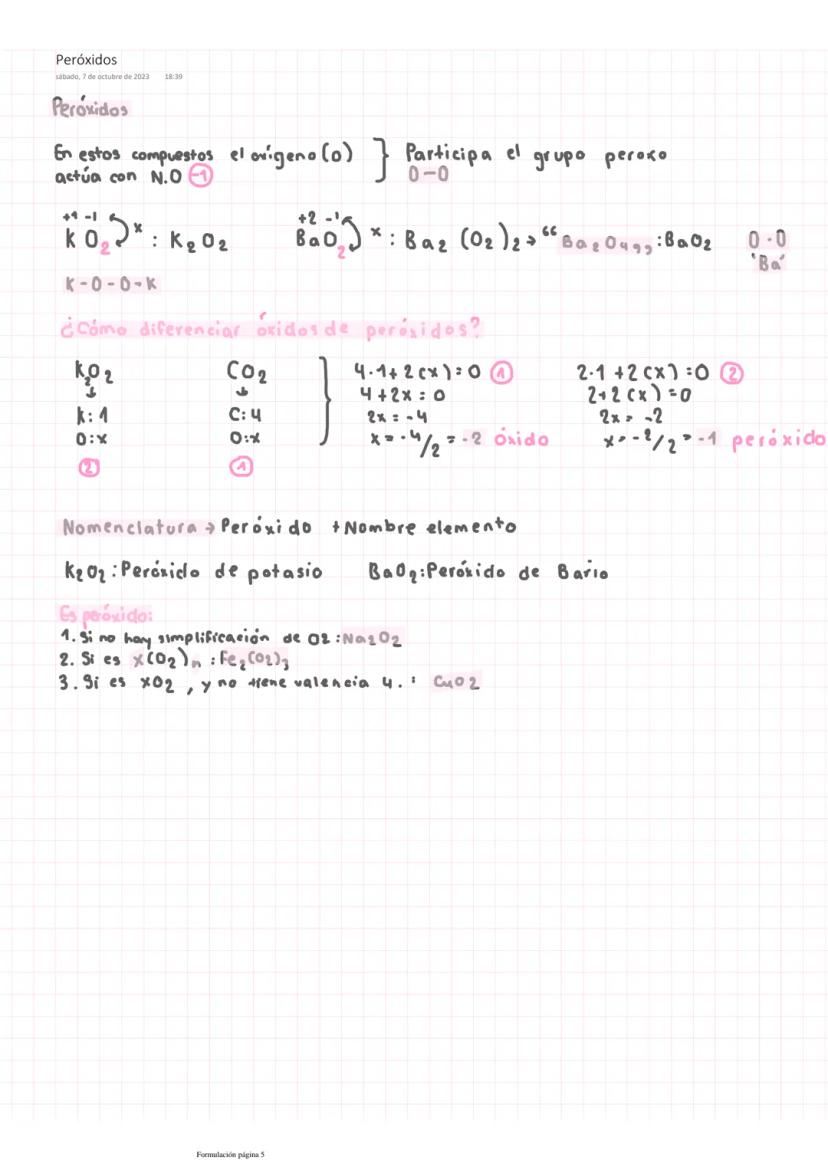 Peróxidos
sábado, 7 de octubre de 2023 18:39
Peróxidos
En estos compuestos el oxígeno (O) } Participa el grupo peroxo
actúa con N.O -1 O-O
+1 -1 +2 -1
K O2 x : K2O2 BaO2 x : Ba2 (O2)2 → “Ba2O4”: BaO2 O-O
'Ba'
K-O-O-K
¿Cómo diferenciar óxidos de peróxidos?
K2O2 CO2 } 4·1+2(x)=0 1 2·1+2(x)=0 2
↓ ↓ 4+2x=0 2+2(x)=0
K:1 C:4 2x=-4 2x=-2
O:x O:x x=-4/2=-2 óxido x=-2/2=-1 peróxido
2 1
Nomenclatura → Peróxido + Nombre elemento
K2O2: Peróxido de potasio BaO2: Peróxido de Bario
Es peróxido:
1. Si no hay simplificación de O2: Na2O2
2. Si es x(O2)n : Fe2(O2)3
3. Si es xO2, y no tiene valencia 4. : CuO2
Formulación página 5